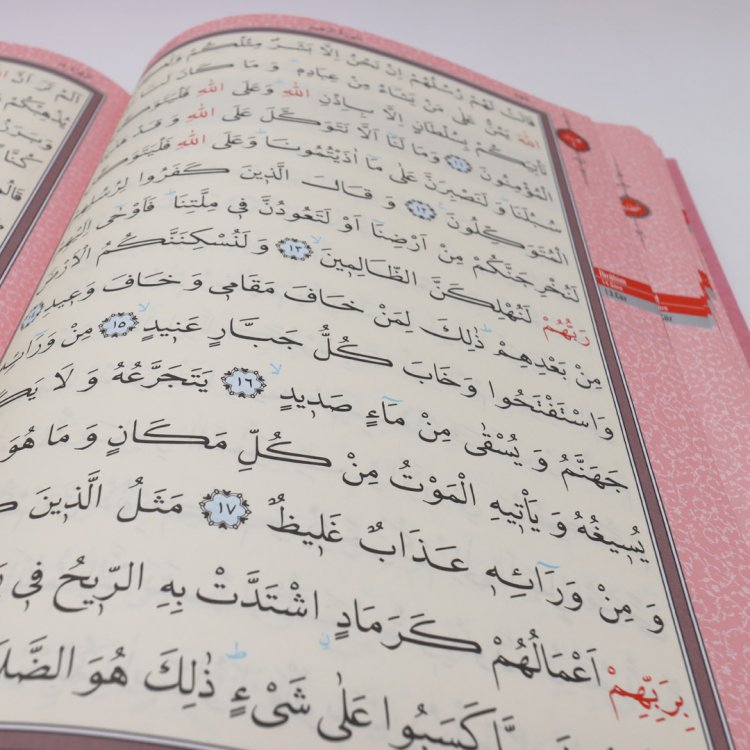 قَالَتْ لَهُمْ رُسُلُهُمْ اِنْ نَحْنُ اِلَّا بَشَرٌ مِثْلُكُمْ
اللّٰهَ يَمُنُّ عَلٰى مَنْ يَشَٓاءُ مِنْ عِبَادِه۪ وَمَا كَانَ لَنَٓا
نَأْتِيَكُمْ بِسُلْطَانٍ اِلَّا بِاِذْنِ اللّٰهِ وَعَلَى اللّٰهِ فَلْيَتَوَكَّلِ
الْمُؤْمِنُونَ ١١ وَمَا لَنَٓا اَلَّا نَتَوَكَّلَ عَلَى اللّٰهِ وَقَدْ
سُبُلَنَا وَلَنَصْبِرَنَّ عَلٰى مَٓا اٰذَيْتُمُونَا وَعَلَى اللّٰهِ فَلْيَتَوَكَّلِ
الْمُتَوَكِّلُونَ ١٢ وَقَالَ الَّذ۪ينَ كَفَرُوا
لَنُخْرِجَنَّكُمْ مِنْ اَرْضِنَٓا اَوْ لَتَعُودُنَّ ف۪ي مِلَّتِنَا فَاَوْحٰٓى
رَبُّهُمْ لَنُهْلِكَنَّ الظَّالِم۪ينَ ١٣ وَلَنُسْكِنَنَّكُمُ الْاَرْضَ
مِنْ بَعْدِهِمْ ذٰلِكَ لِمَنْ خَافَ مَقَام۪ي وَخَافَ وَع۪يدِ
وَاسْتَفْتَحُوا وَخَابَ كُلُّ جَبَّارٍ عَن۪يدٍ ١٥ مِنْ
جَهَنَّمُ وَيُسْقٰى مِنْ مَٓاءٍ صَد۪يدٍ ١٦ يَتَجَرَّعُهُ وَلَا
يُس۪يغُهُ وَيَأْت۪يهِ الْمَوْتُ مِنْ كُلِّ مَكَانٍ وَمَا هُوَ
وَمِنْ وَرَٓائِه۪ عَذَابٌ غَل۪يظٌ ١٧ مَثَلُ الَّذ۪ينَ
بِرَبِّهِمْ اَعْمَالُهُمْ كَرَمَادٍ اشْتَدَّتْ بِهِ الرّ۪يحُ ف۪ي
كَسَبُوا عَلٰى شَيْءٍ ذٰلِكَ هُوَ